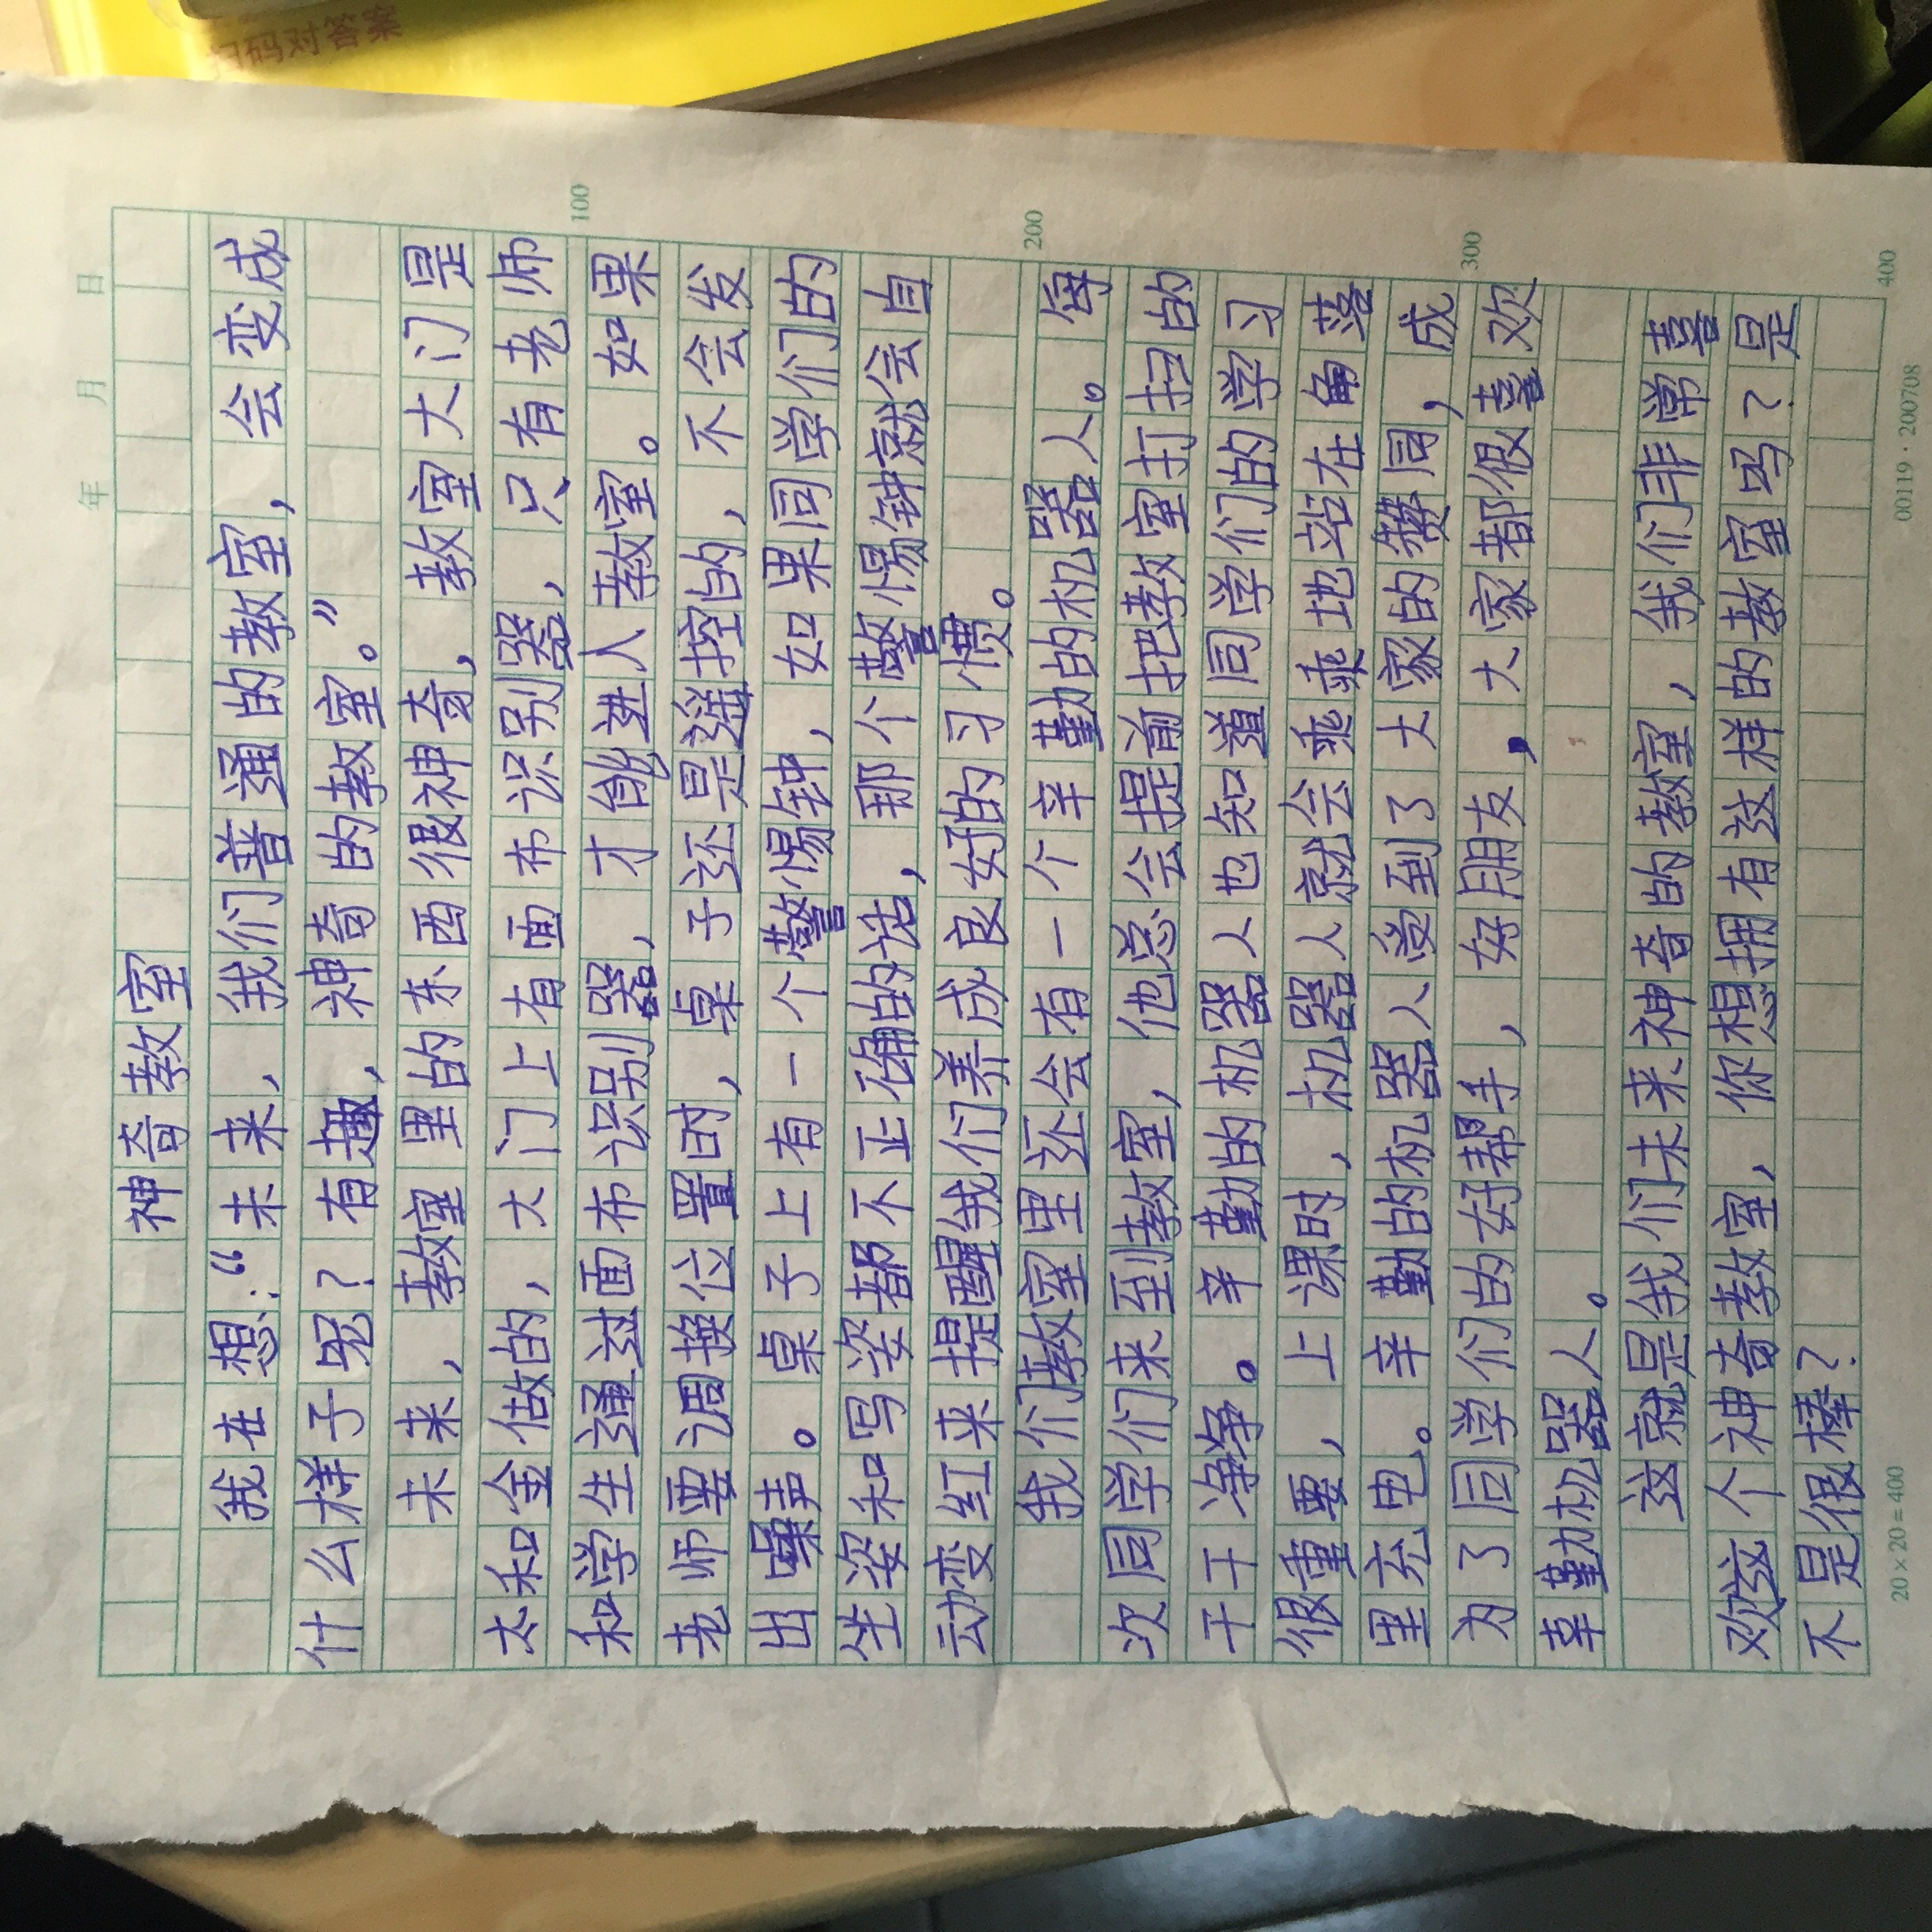 扫码对答案
年 月 日
神奇教室
我在想：“未来，我们普通的教室，会变成
什么样子呢？有趣，神奇的教室。”
未来，教室里的东西很神奇，教室大门是
太和金做的，大门上有面布识别器，只有老师
和学生通过面布识别器，才能进人教室。如果
老师要调换位置时，桌子还是遥控的，不会发
出噪声。桌子上有一个警惕钟，如果同学们的
坐姿和写姿都不正确的话，那个警惕钟就会自
动变红来提醒我们养成良好的习惯。
我们教室里还会有一个辛勤的机器人。每
次同学们来到教室，他总会提前把教室打扫的
干干净净。辛勤的机器人也知道同学们的学习
很重要，上课时，机器人就会乖乖地站在角落
里充电。辛勤的机器人受到了大家的赞同，成
为了同学们的好帮手，好朋友，大家都很喜欢
辛勤机器人。
这就是我们未来神奇的教室，我们非常喜
欢这个神奇教室，你想拥有这样的教室吗？是
不是很棒？
100
200
300
400
20×20=400
00119·200708